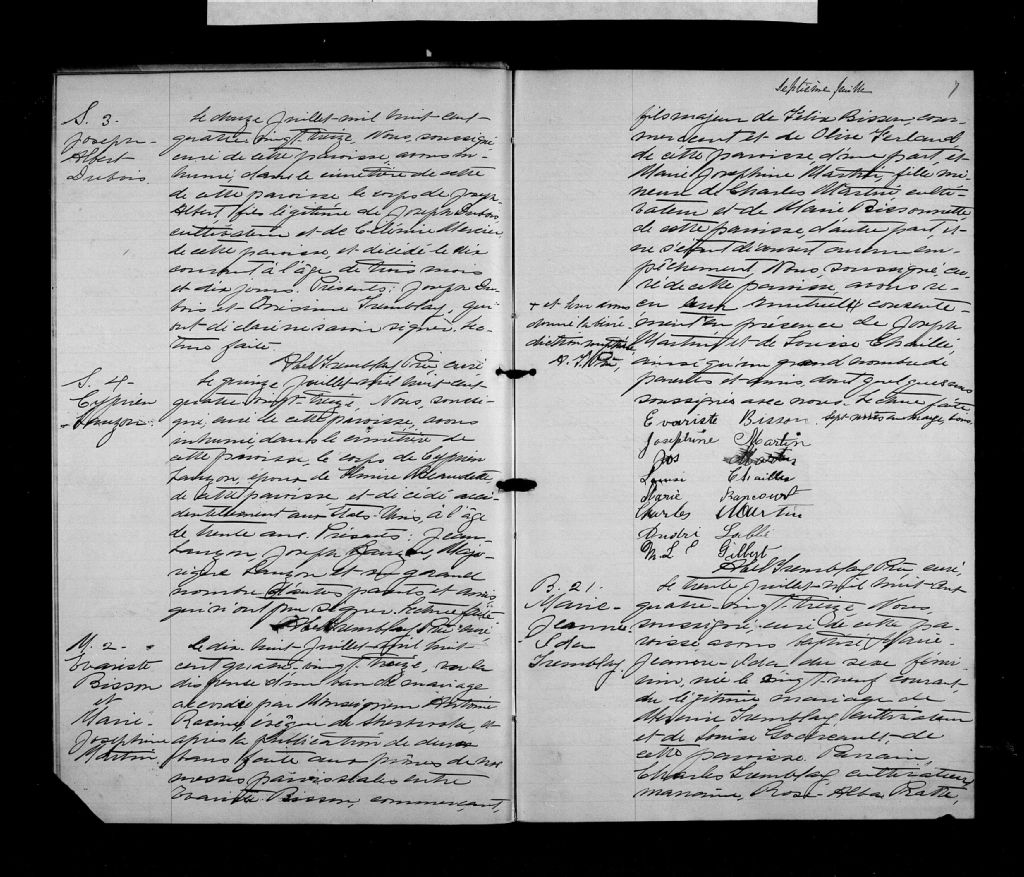 S. 3.
Joseph-
Albert
Dubois.
Le douze Juillet mil huit cent
quatre vingt treize, Nous, soussigné
curé de cette paroisse, avons in-
humé dans le cimetière de cette
de cette paroisse le corps de Joseph
Albert fils légitime de Joseph Dubois,
cultivateur et de Célimie Mercier,
de cette paroisse, et décédé le dix
courant à l'âge de trois mois
et dix jours. Présents: Joseph Du-
bois et Onésime Tremblay, qui
ont déclaré ne savoir signer. Lec-
ture faite.
Abel Tremblay Ptre, curé
S. 4-
Cyprien
Lauzon.
Le quinze Juillet mil huit cent
quatre vingt treize, Nous, soussi-
gné, curé de cette paroisse, avons
inhumé dans le cimetière de
cette paroisse, le corps de Cyprien
Lauzon, époux de Beaudette,
de cette paroisse et décédé acci-
dentellement aux États-Unis, à l'âge
de trente ans. Présents: Jean
Lauzon, Joseph Lauzon,
Lauzon et grand
nombre d'autres parents et amis
qui n'ont pu signer. Lecture faite
Abel Tremblay Ptre curé
M. 2-
Evariste
Bisson
et
Marie-
Josephine
Martin
Le dix-huit Juillet mil huit
cent quatre-vingt treize, vu la
dispense d'un ban de mariage
accordée par Monseigneur Antoine
Racine, évêque de Sherbrooke, et
après la publication de deux
bans faite aux prônes de nos
messes paroissiales entre
Evariste Bisson commerçant,
Septième feuille
7
fils majeur de Félix Bisson, com-
merçant et de Olive Ferland
de cette paroisse, d'une part, et
Marie Josephine Martin, fille mi-
neure de Charles Martin culti-
vateur et de Marie Bissonnette,
de cette paroisse, d'autre part, et
ne s'étant découvert aucun em-
pêchement, Nous, soussigné, cu-
ré de cette paroisse, avons re-
çu leur mutuel consente-
ment en présence de Joseph
Martin et de Louise Chaillé,
ainsi qu'un grand nombre de
parents et amis, dont quelques uns
soussignés avec nous. Lecture faite.
+ et leur avons
donné la béné-
diction nuptiale
A. T. Ptre,
Evariste Bisson
Josephine Martin
Jos Martin
Louise Chailles
Marie Rancourt
Charles Martin
M. L. E Gilbert
Abel Tremblay Ptre curé,
B. 21.
Marie-
Jeanne
Tremblay.
Le trente Juillet mil huit cent
quatre-vingt treize Nous,
soussigné, curé de cette pa-
roisse, avons baptisé Marie-
Jeanne- du sexe fémi-
nin, née le vingt-neuf courant,
du légitime mariage de
Tremblay, cultivateur
et de Louise de
cette paroisse. Parrain,
Charles Tremblay cultivateur,
marraine, Rose-Alba